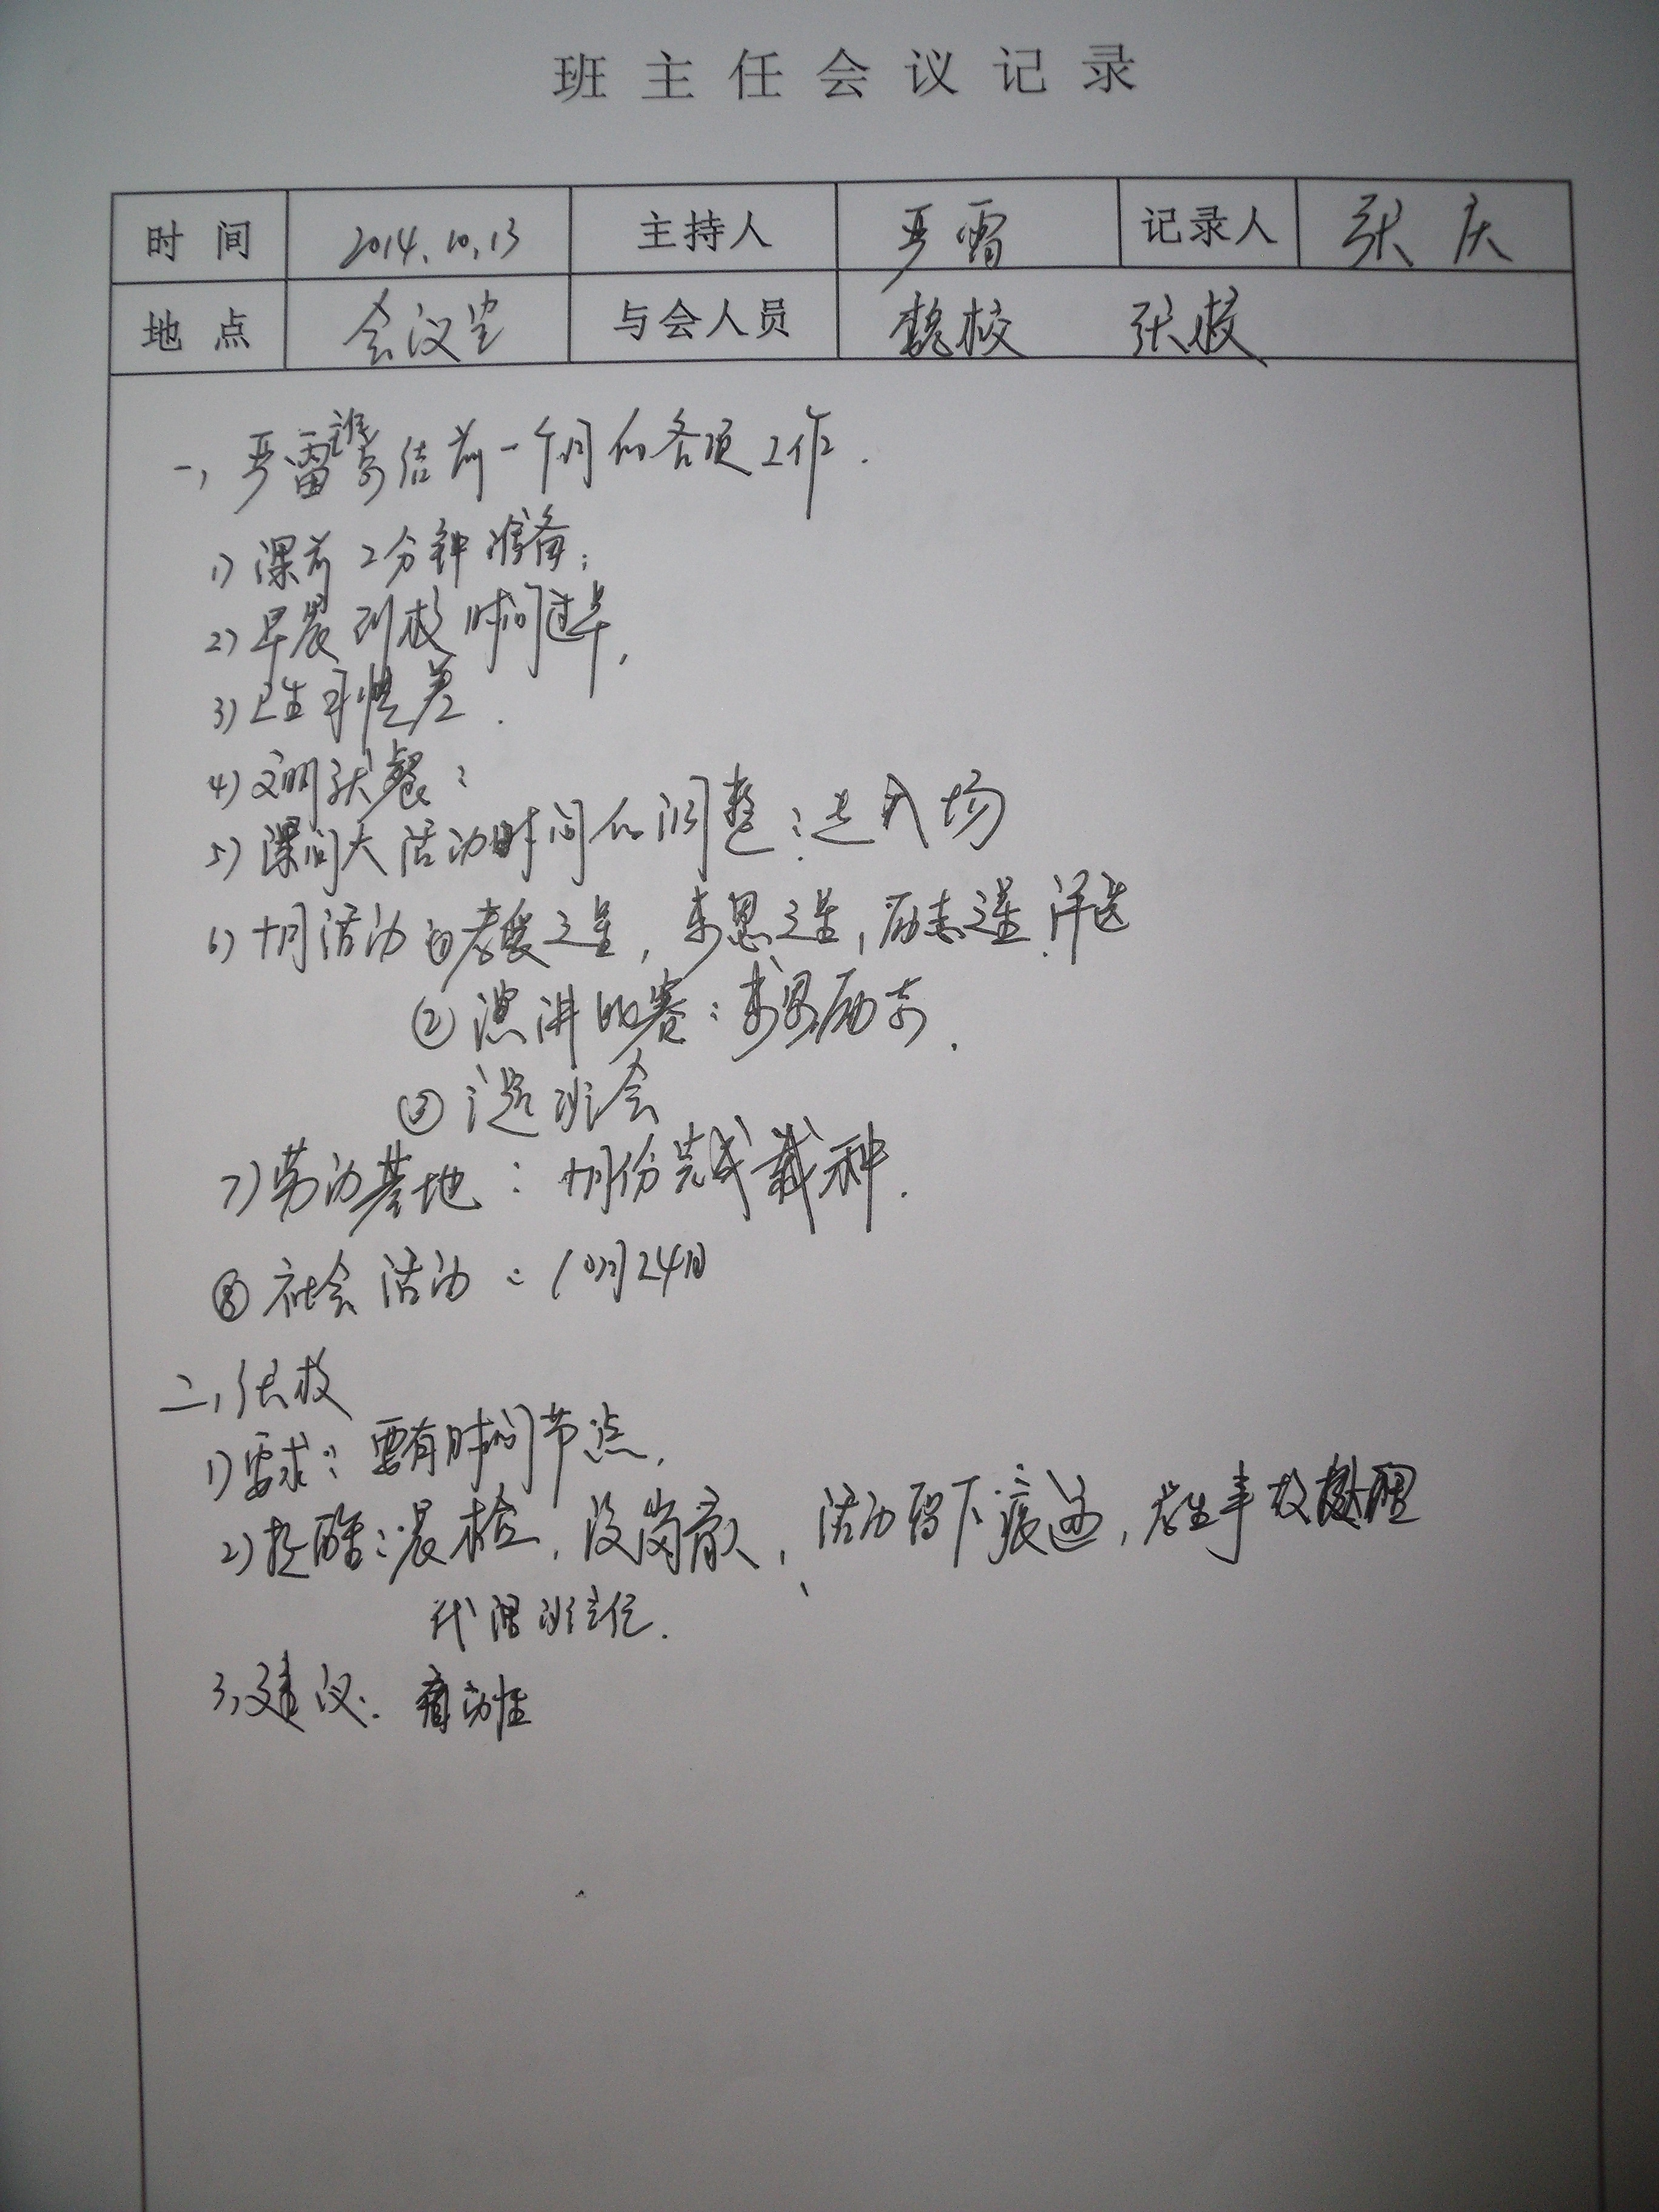 班主任会议记录
时间 2014.10.13 主持人 严雷 记录人 张庆
地点 会议室 与会人员 魏校 张校
一、严雷总结前一个月的各项工作.
1) 课前2分钟准备;
2) 早晨到校时间过早,
3) 卫生习惯差.
4) 文明就餐:
5) 课间大活动时间的调整:进入场
6) 十月活动 ①孝爱之星, 感恩之星, 励志之星评选
② 演讲比赛:感恩励志.
③ 主题班会
7) 劳动基地: 十月份完成栽种.
⑧ 社会活动: 10月24日
二、张校
1) 要求: 要有时间节点.
2) 提醒:晨检, 活动留下痕迹, 学生事故处理
代理班主任.
3, 建议: